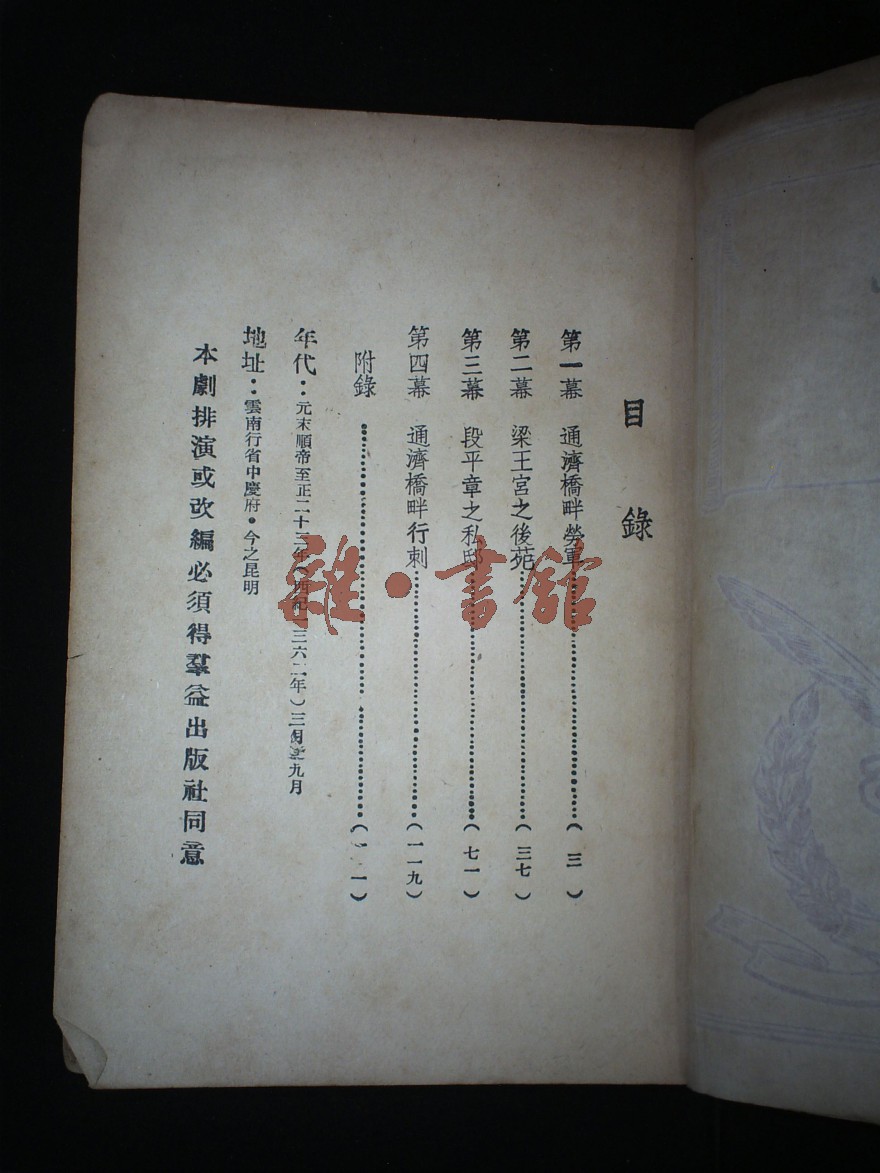 目錄
第一幕 通濟橋畔勞軍……(三)
第二幕 梁王宮之後苑……(三七)
第三幕 段平章之私邸……(七一)
第四幕 通濟橋畔行刺……(一一九)
附錄……
年代：元末順帝至正二十三年（西紀一三六二年）三月至九月
地址：雲南行省中慶府・今之昆明
本劇排演或改編必須得羣益出版社同意
雜・書館